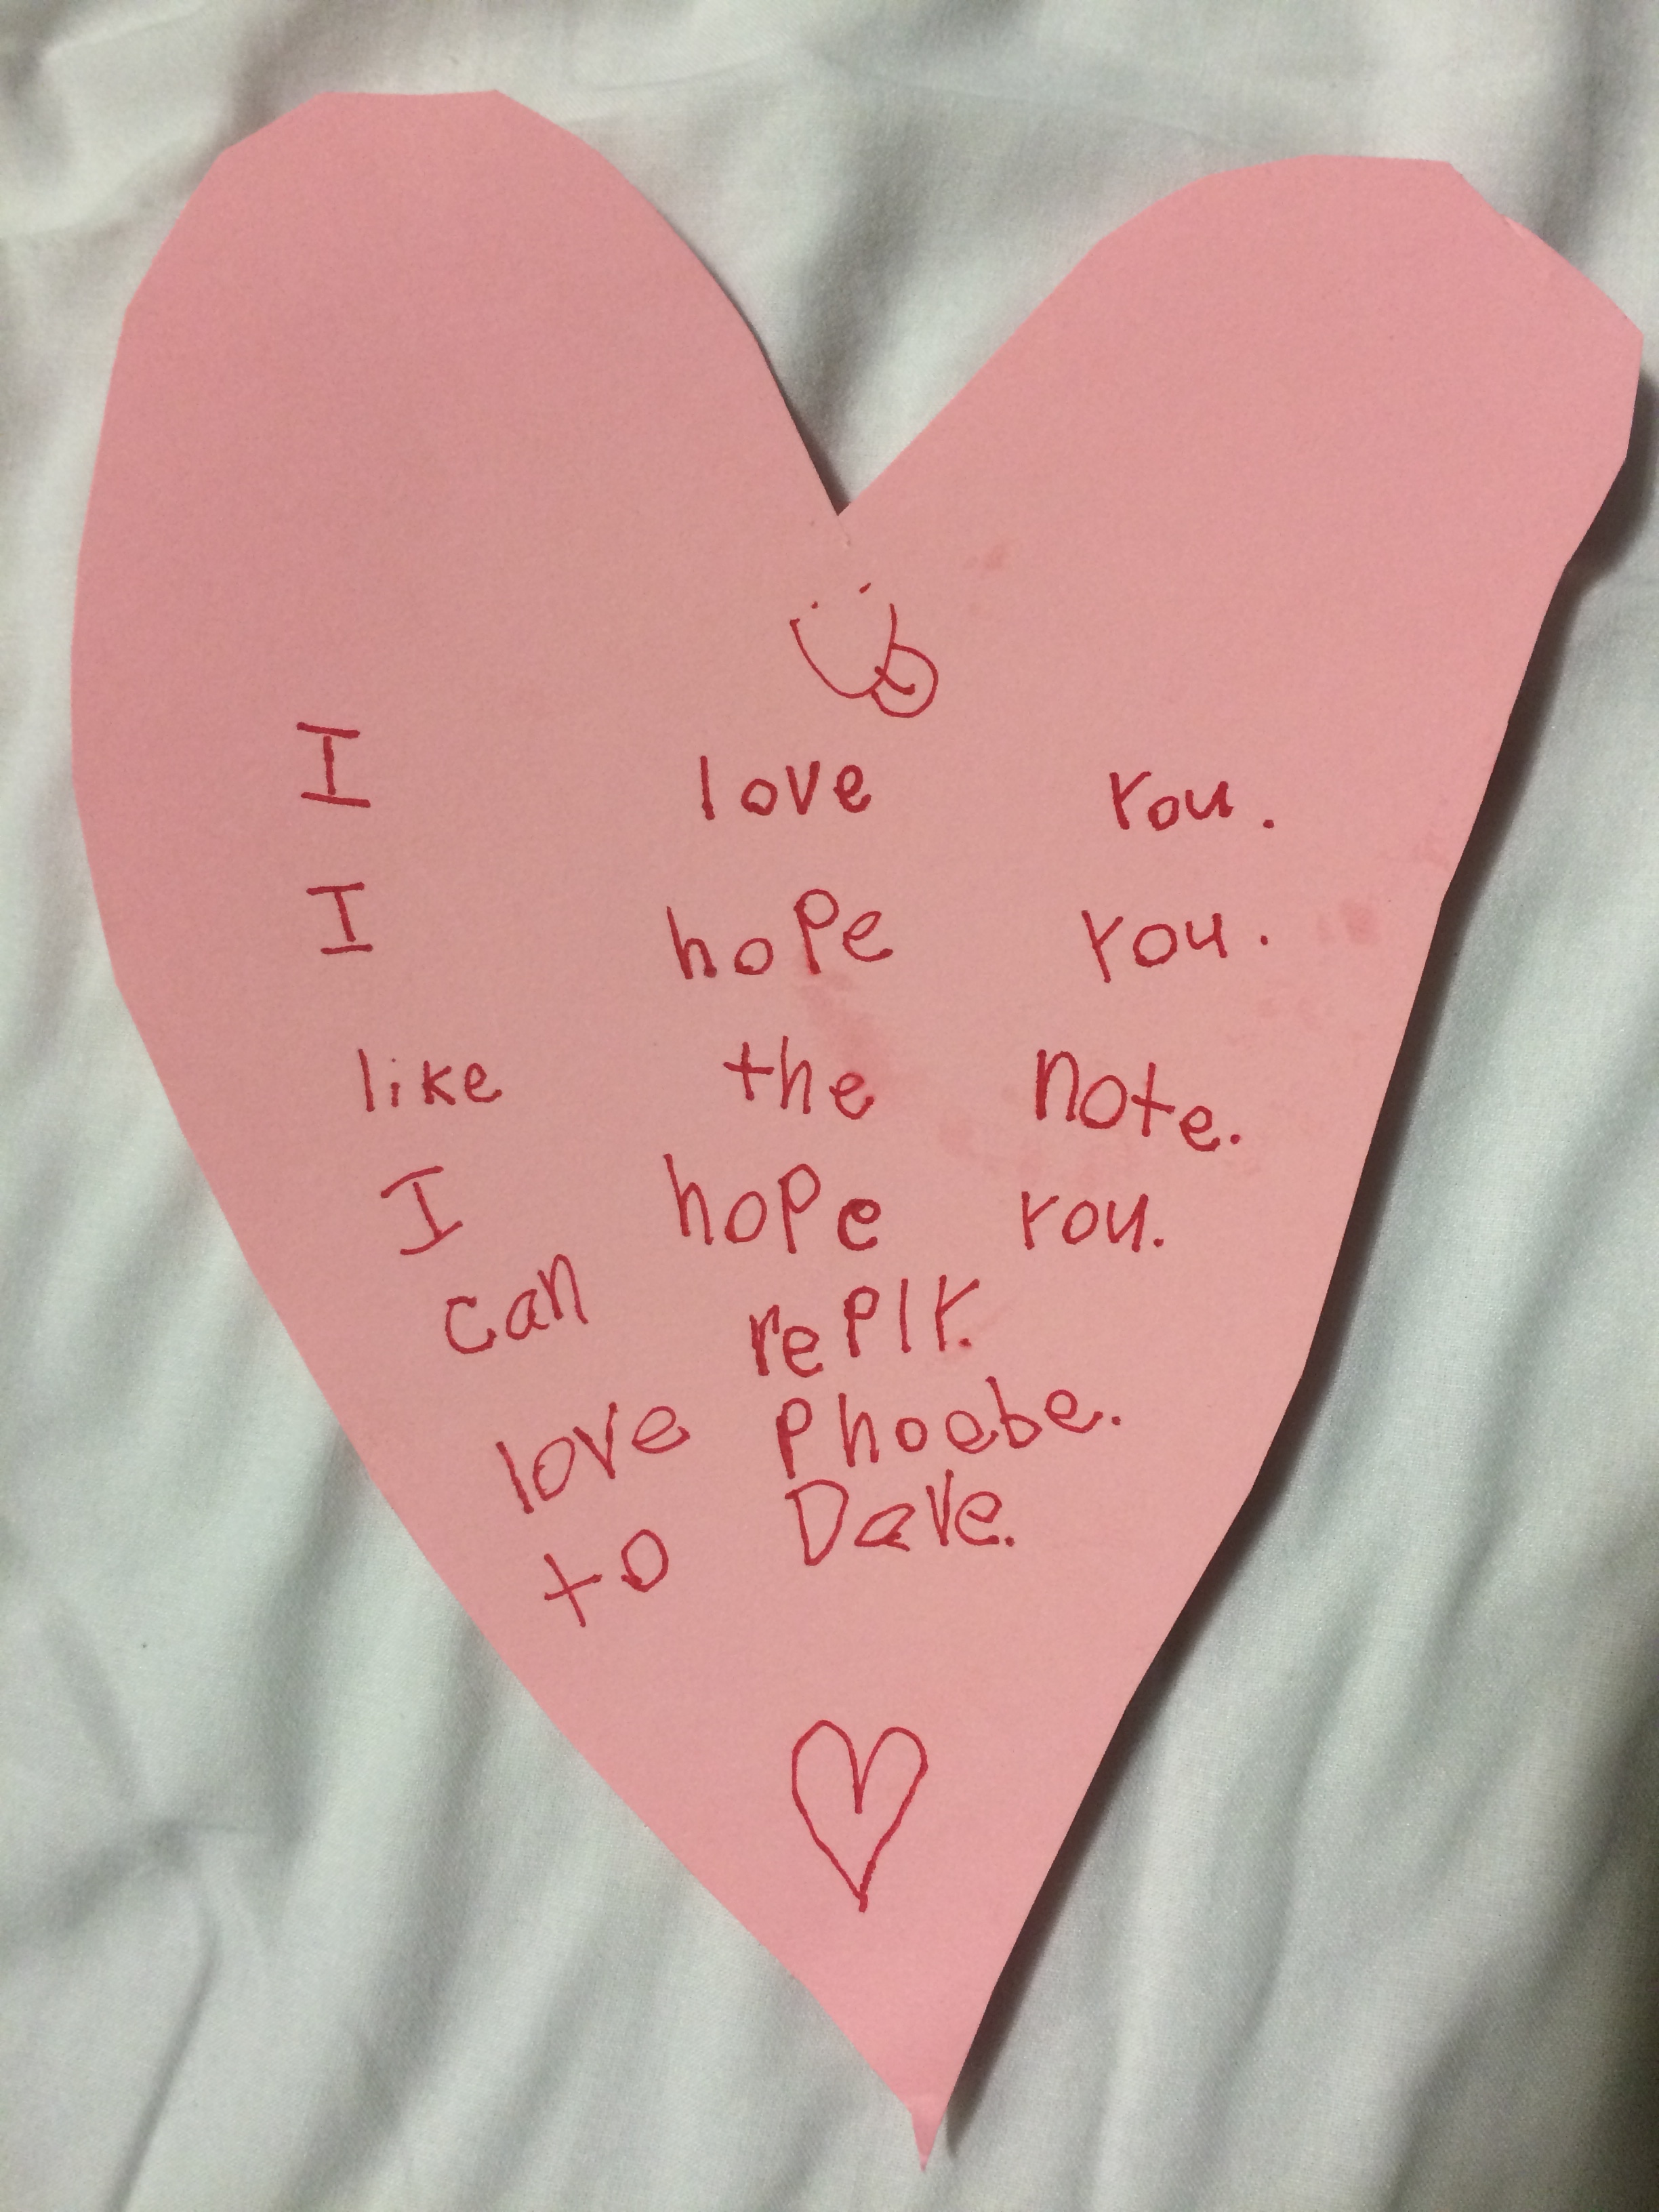 I love you.
I hope you.
like the note.
I hope you.
can reply.
love Phoebe.
to Dave.